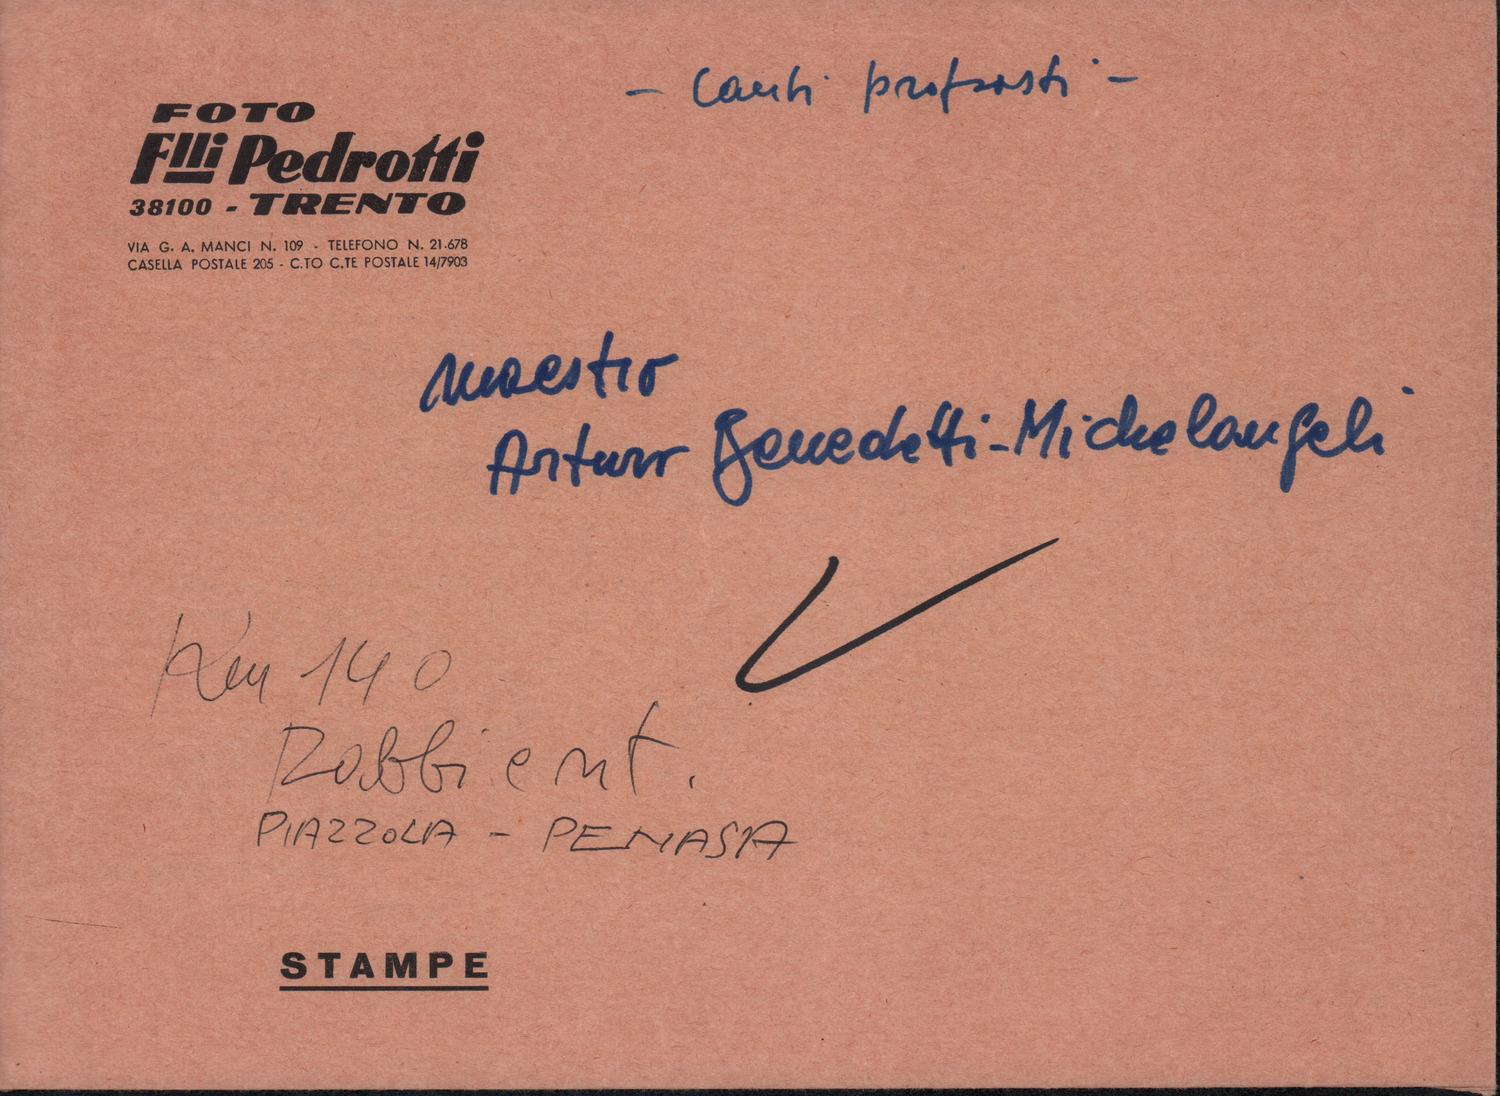 - Canti proposti -
FOTO
Flli Pedrotti
38100 - TRENTO
VIA G. A. MANCI N. 109 - TELEFONO N. 21.678
CASELLA POSTALE 205 - C.TO C.TE POSTALE 14/7903
Maestro
Arturo Benedetti-Michelangeli
Km 140
Rabbi e nt.
PIAZZOLA - PENASA
STAMPE